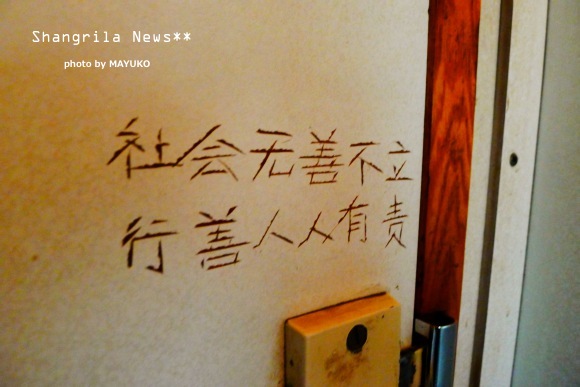 Shangrila News**
photo by MAYUKO
社会无善不立
行善人人有责